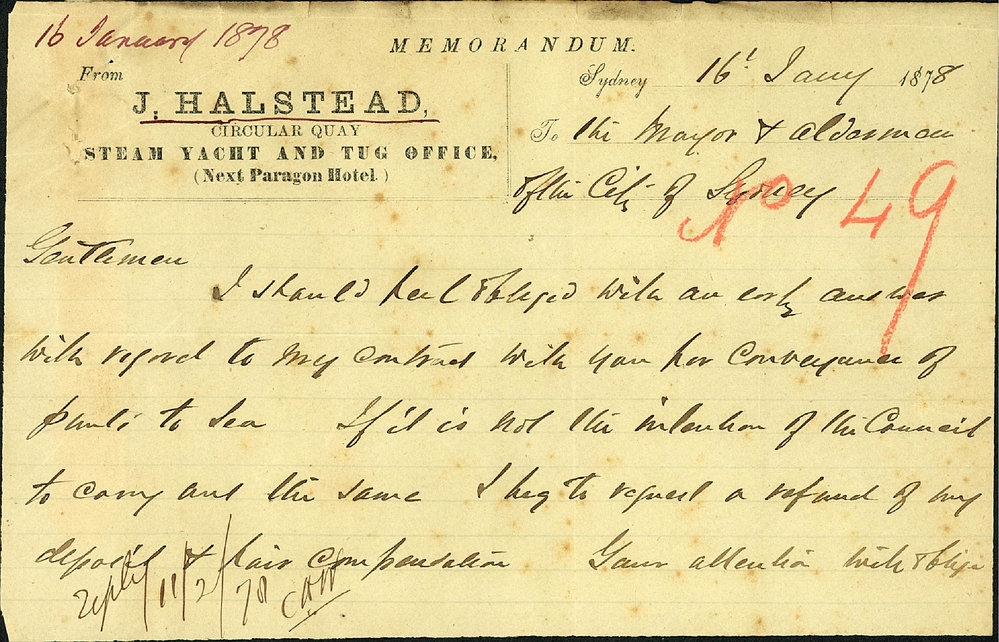 16 January 1878
MEMORANDUM.
From
J. HALSTEAD,
CIRCULAR QUAY
STEAM YACHT AND TUG OFFICE,
(Next Paragon Hotel.)
Sydney 16t Jany 1878
To the Mayor & Alderman
of the City of Sydney
No 49
Gentlemen
I should feel obliged with an early answer
with regard to my contract with you for conveyance of
punts to sea If it is not the intention of the Council
to carry out the same I beg to request a refund of my
deposit & fair compensation Your attention will oblige
reply 11/2/78